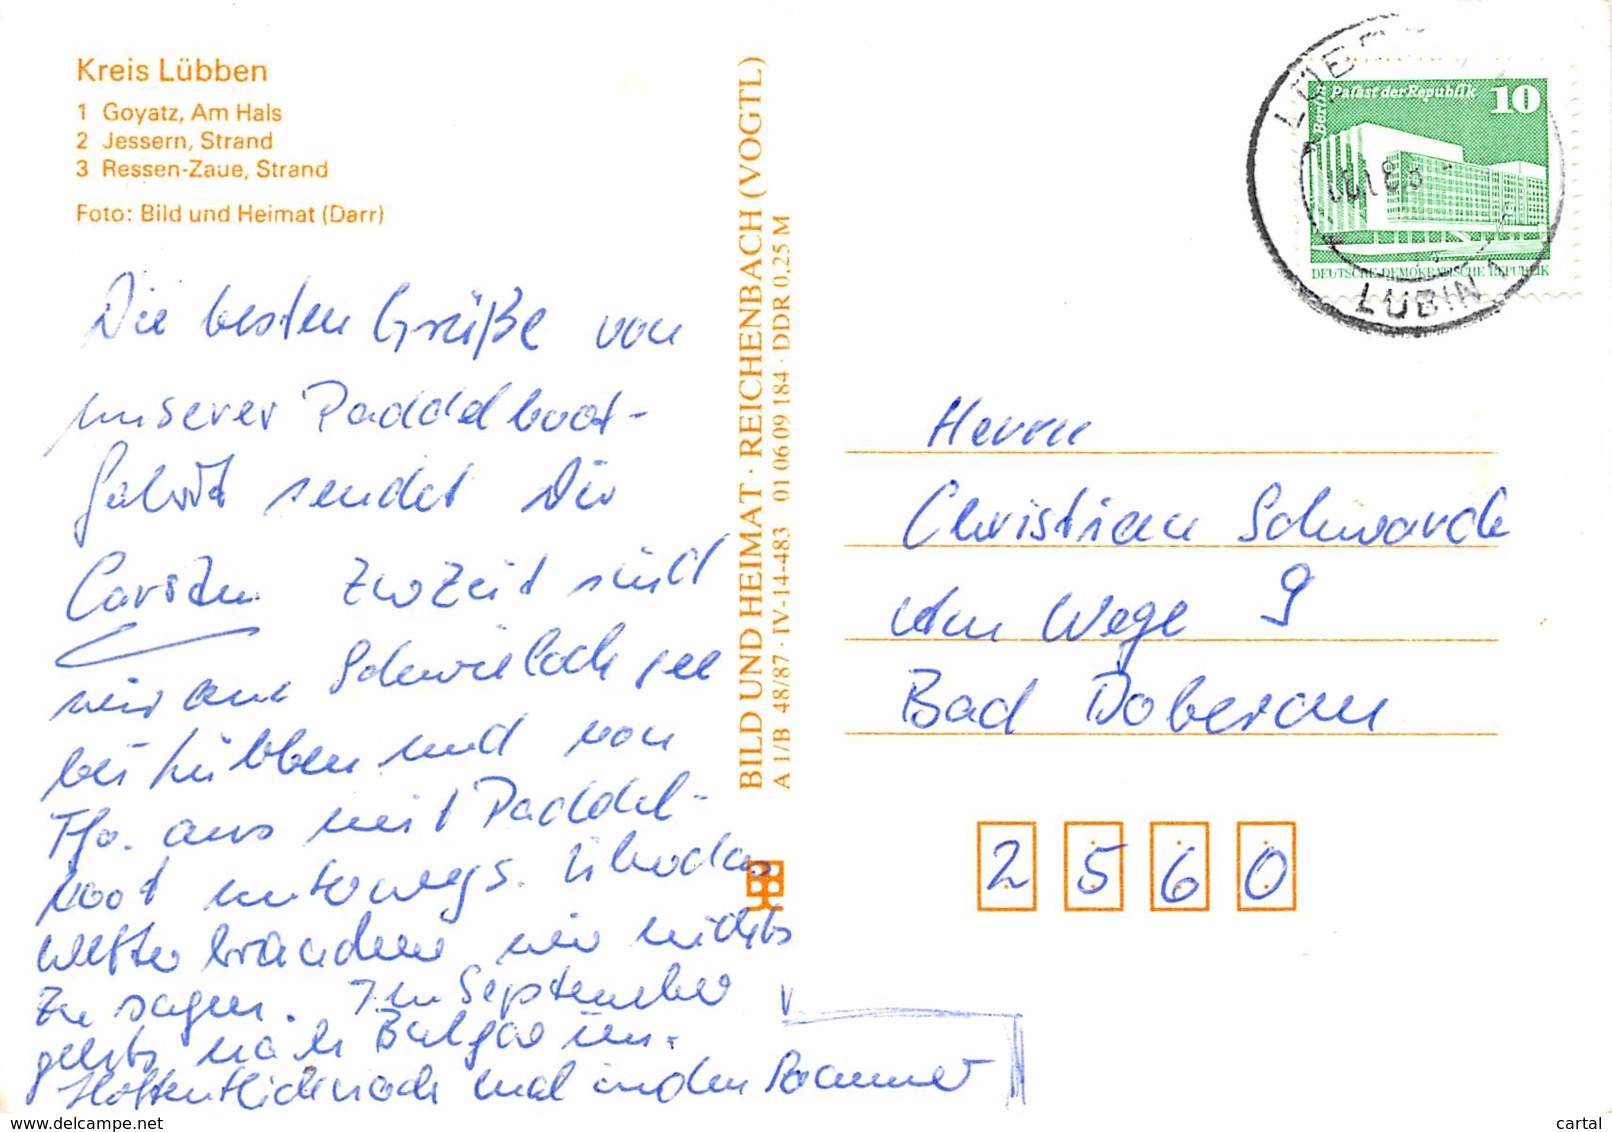 Kreis Lübben
1 Goyatz, Am Hals
2 Jessern, Strand
3 Ressen-Zaue, Strand
Foto: Bild und Heimat (Darr)
Die besten Grüße von
unserer Paddelboot-
fahrt sendet Dir
Carsten Zurzeit sind
wir am Schwielochsee
bei Lübben und von
Ffo. aus mit Paddel-
boot unterwegs. Über das
Wetter brauchen wir nichts
zu sagen. Im September
gehts nach Bulgarien.
Hoffentlich noch mal in den Sommer
BILD UND HEIMAT · REICHENBACH (VOGTL)
A 1/B 48/87 · IV-14-483 01 06 09 184 · DDR 0,25 M
Berlin
Palast der Republik 10
DEUTSCHE DEMOKRATISCHE REPUBLIK
LUBIN
Herrn
Christian Schwarck
Am Wege 9
Bad Doberan
2560
https://www.delcampe.net
cartal